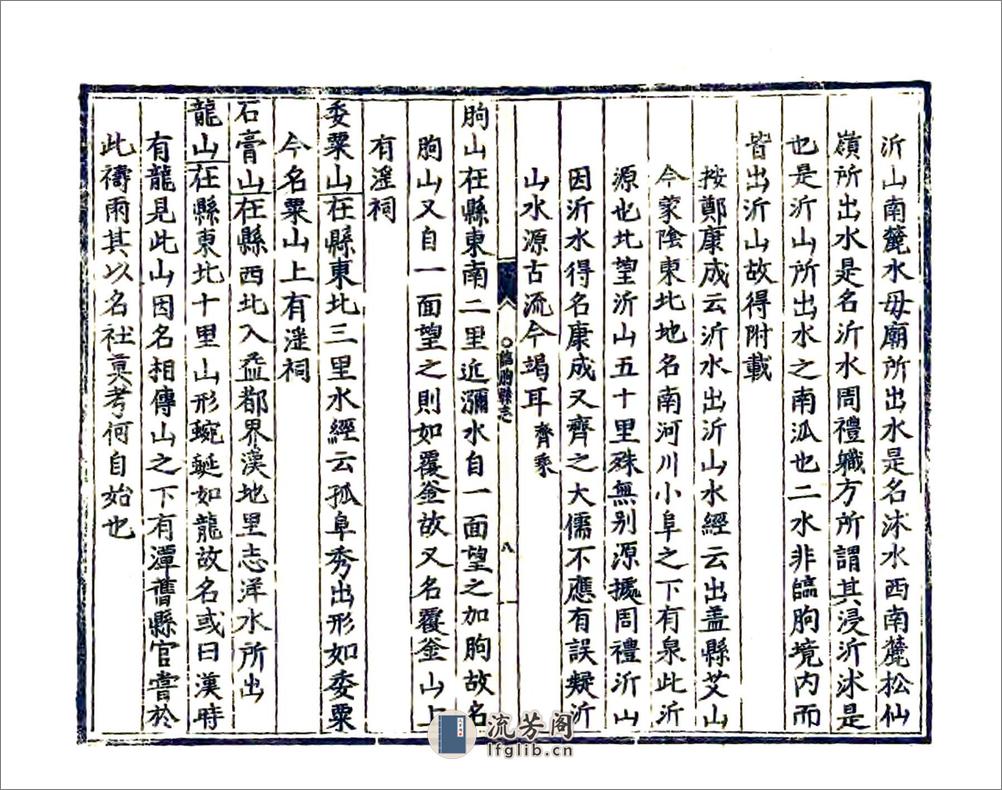 沂山南麓水毋廟所出水是名沭水西南麓松仙
嶺所出水是名沂水周禮職方所謂其浸沂沭是
也是沂山所出水之南派也二水非臨朐境内而
皆出沂山故得附載
按鄭康成云沂水出沂山水經云出盖縣艾山
今蒙陰東北地名南河川小阜之下有泉此沂
源也北望沂山五十里殊無别源據周禮沂山
因沂水得名康成又齊之大儒不應有誤疑沂
山水源古流今竭耳 齊乘
臨朐縣志 八
朐山在縣東南二里近瀰水自一面望之加朐故名
朐山又自一面望之則如覆釜故又名覆釜山上
有滛祠
委粟山在縣東北三里水經云孤阜秀出形如委粟
今名粟山上有滛祠
石膏山在縣西北入益都界漢地里志洋水所出
龍山在縣東北十里山形蜿蜒如龍故名或曰漢時
有龍見此山因名相傳山之下有潭舊縣官嘗於
此禱雨其以名社莫考何自始也
流芳阁
lfglib.cn